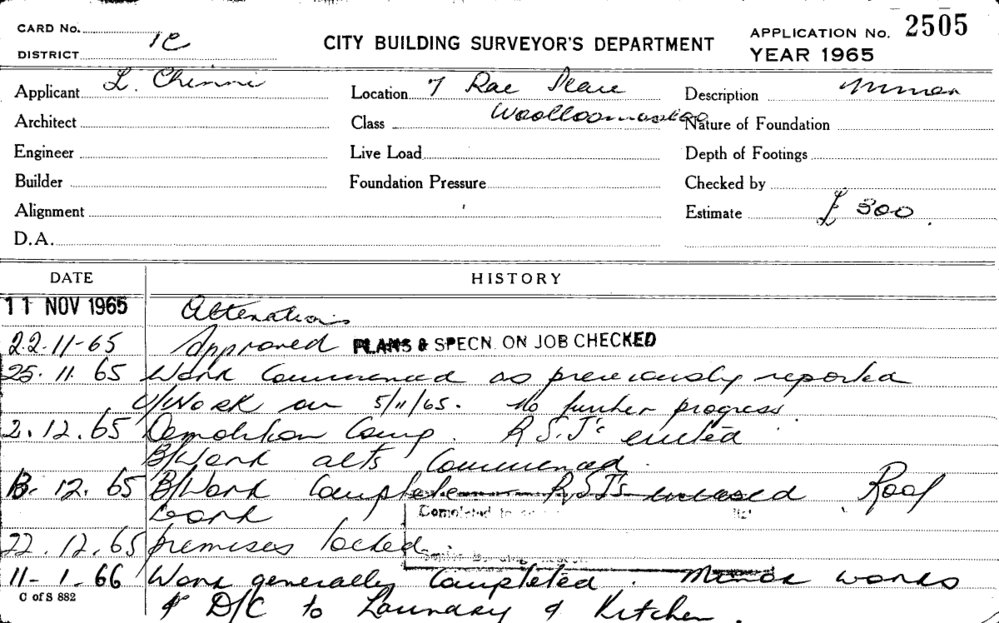 CARD No.
DISTRICT
CITY BUILDING SURVEYOR'S DEPARTMENT
APPLICATION No. 2505
YEAR 1965
Applicant L.
Location 7 Rae Place
Woolloomooloo
Description Minor
Architect
Class
Nature of Foundation
Engineer
Live Load
Depth of Footings
Builder
Foundation Pressure
Checked by
Alignment
Estimate £ 300.
D.A.
DATE
HISTORY
11 NOV 1965 Alterations
22-11-65 Approved PLANS & SPECN. ON JOB CHECKED
25.11.65 Work Commenced as previously reported
U/Work on 5/11/65. No further progress
2.12.65 Demolition Comp. R.S.J's erected
B/Work alts Commenced.
13.12.65 B/Work Complete R.S.J's encased Roof
work
Completed
22.12.65 premises locked.
11-1-66 Work generally Completed. Minor works
C of S 882
& D/C to Laundry & Kitchen.